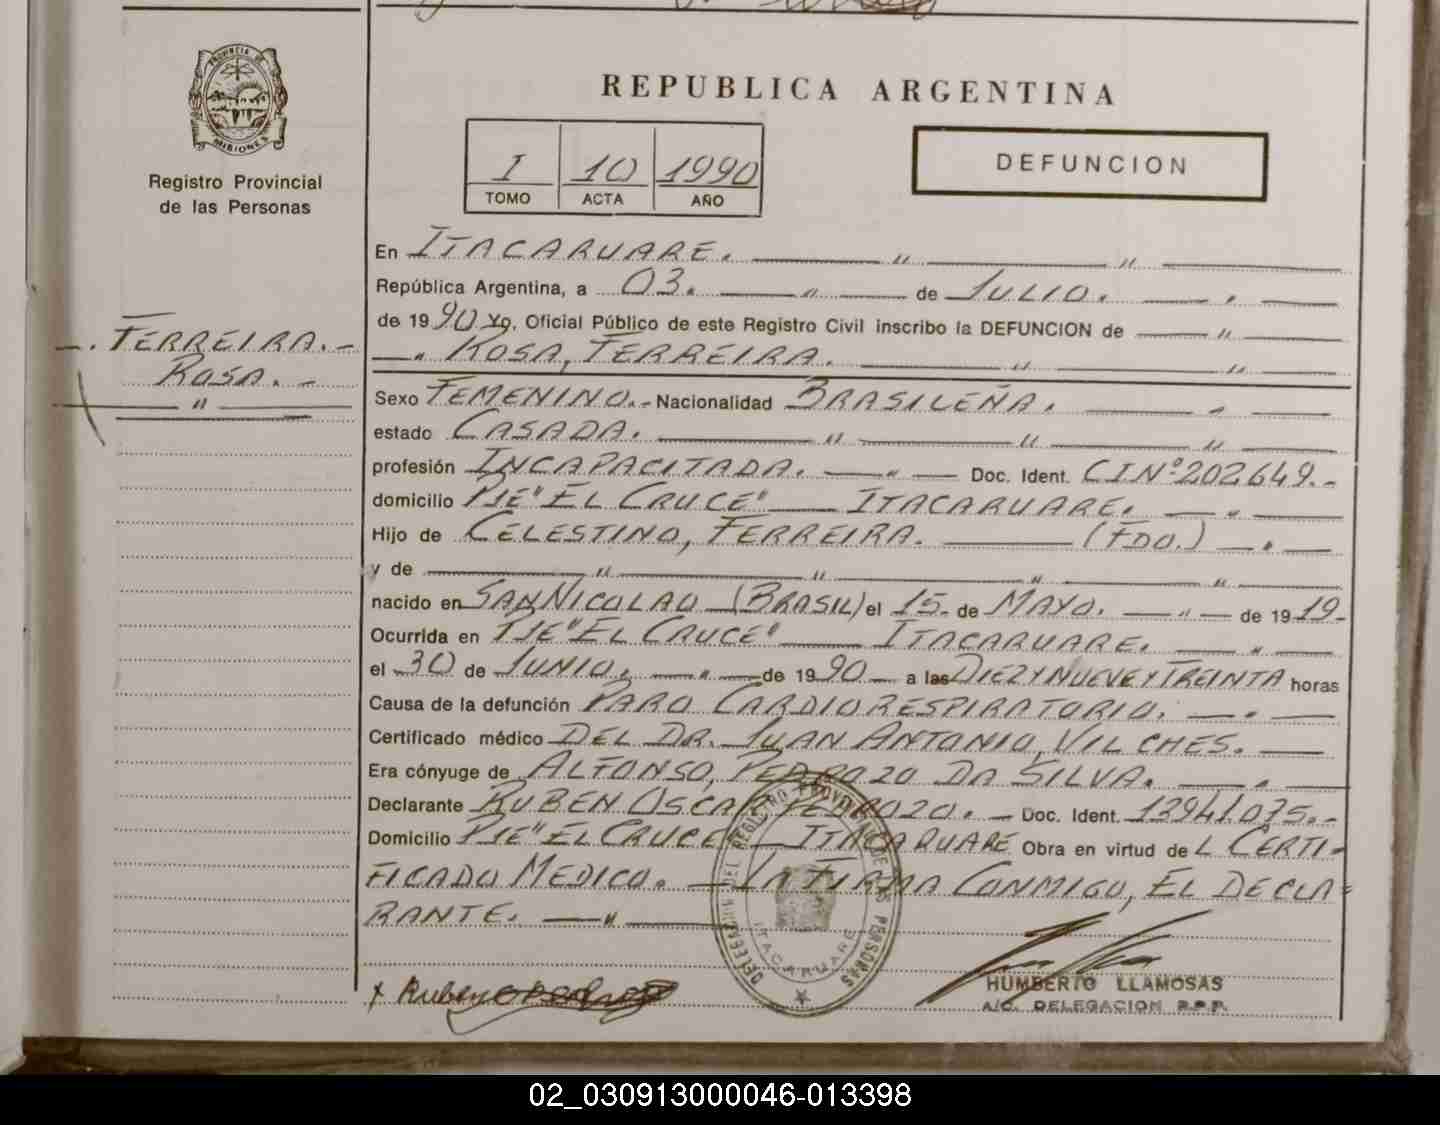 PROVINCIA DE
MISIONES
Registro Provincial
de las Personas
REPUBLICA ARGENTINA
I 10 1990
TOMO ACTA AÑO
DEFUNCION
En ITACARUARE. " "
República Argentina, a 03. " de JULIO. "
de 1990 Yo, Oficial Público de este Registro Civil inscribo la DEFUNCION de "
" ROSA, FERREIRA. " "
FERREIRA.-
ROSA.-
"
Sexo FEMENINO.- Nacionalidad BRASILEÑA. "
estado CASADA. " " "
profesión INCAPACITADA. " Doc. Ident. CI Nº 202649.-
domicilio PJE "EL CRUCE" ITACARUARE. "
Hijo de CELESTINO, FERREIRA. (FDO.) "
y de " " " "
nacido en SAN NICOLAO (BRASIL) el 15- de MAYO. " de 1919-
Ocurrida en PJE "EL CRUCE" ITACARUARE. "
el 30 de JUNIO, " de 1990 a las DIEZ Y NUEVE Y TREINTA horas
Causa de la defunción PARO CARDIORESPIRATORIO. "
Certificado médico DEL DR. JUAN ANTONIO, VILCHES.
Era cónyuge de ALFONSO, PEDROZO DA SILVA. "
Declarante RUBEN OSCAR PEDROZO. - Doc. Ident. 13941.075.-
Domicilio PJE "EL CRUCE" ITACARUARE Obra en virtud de L CERTI-
FICADO MEDICO. LA FIRMA CONMIGO, EL DECLA=
RANTE. "
DELEGACION DEL REGISTRO PROVINCIAL DE LAS PERSONAS
ITACARUARE
x Ruben
HUMBERTO LLAMOSAS
A/C. DELEGACION R.P.P.
02_030913000046-013398